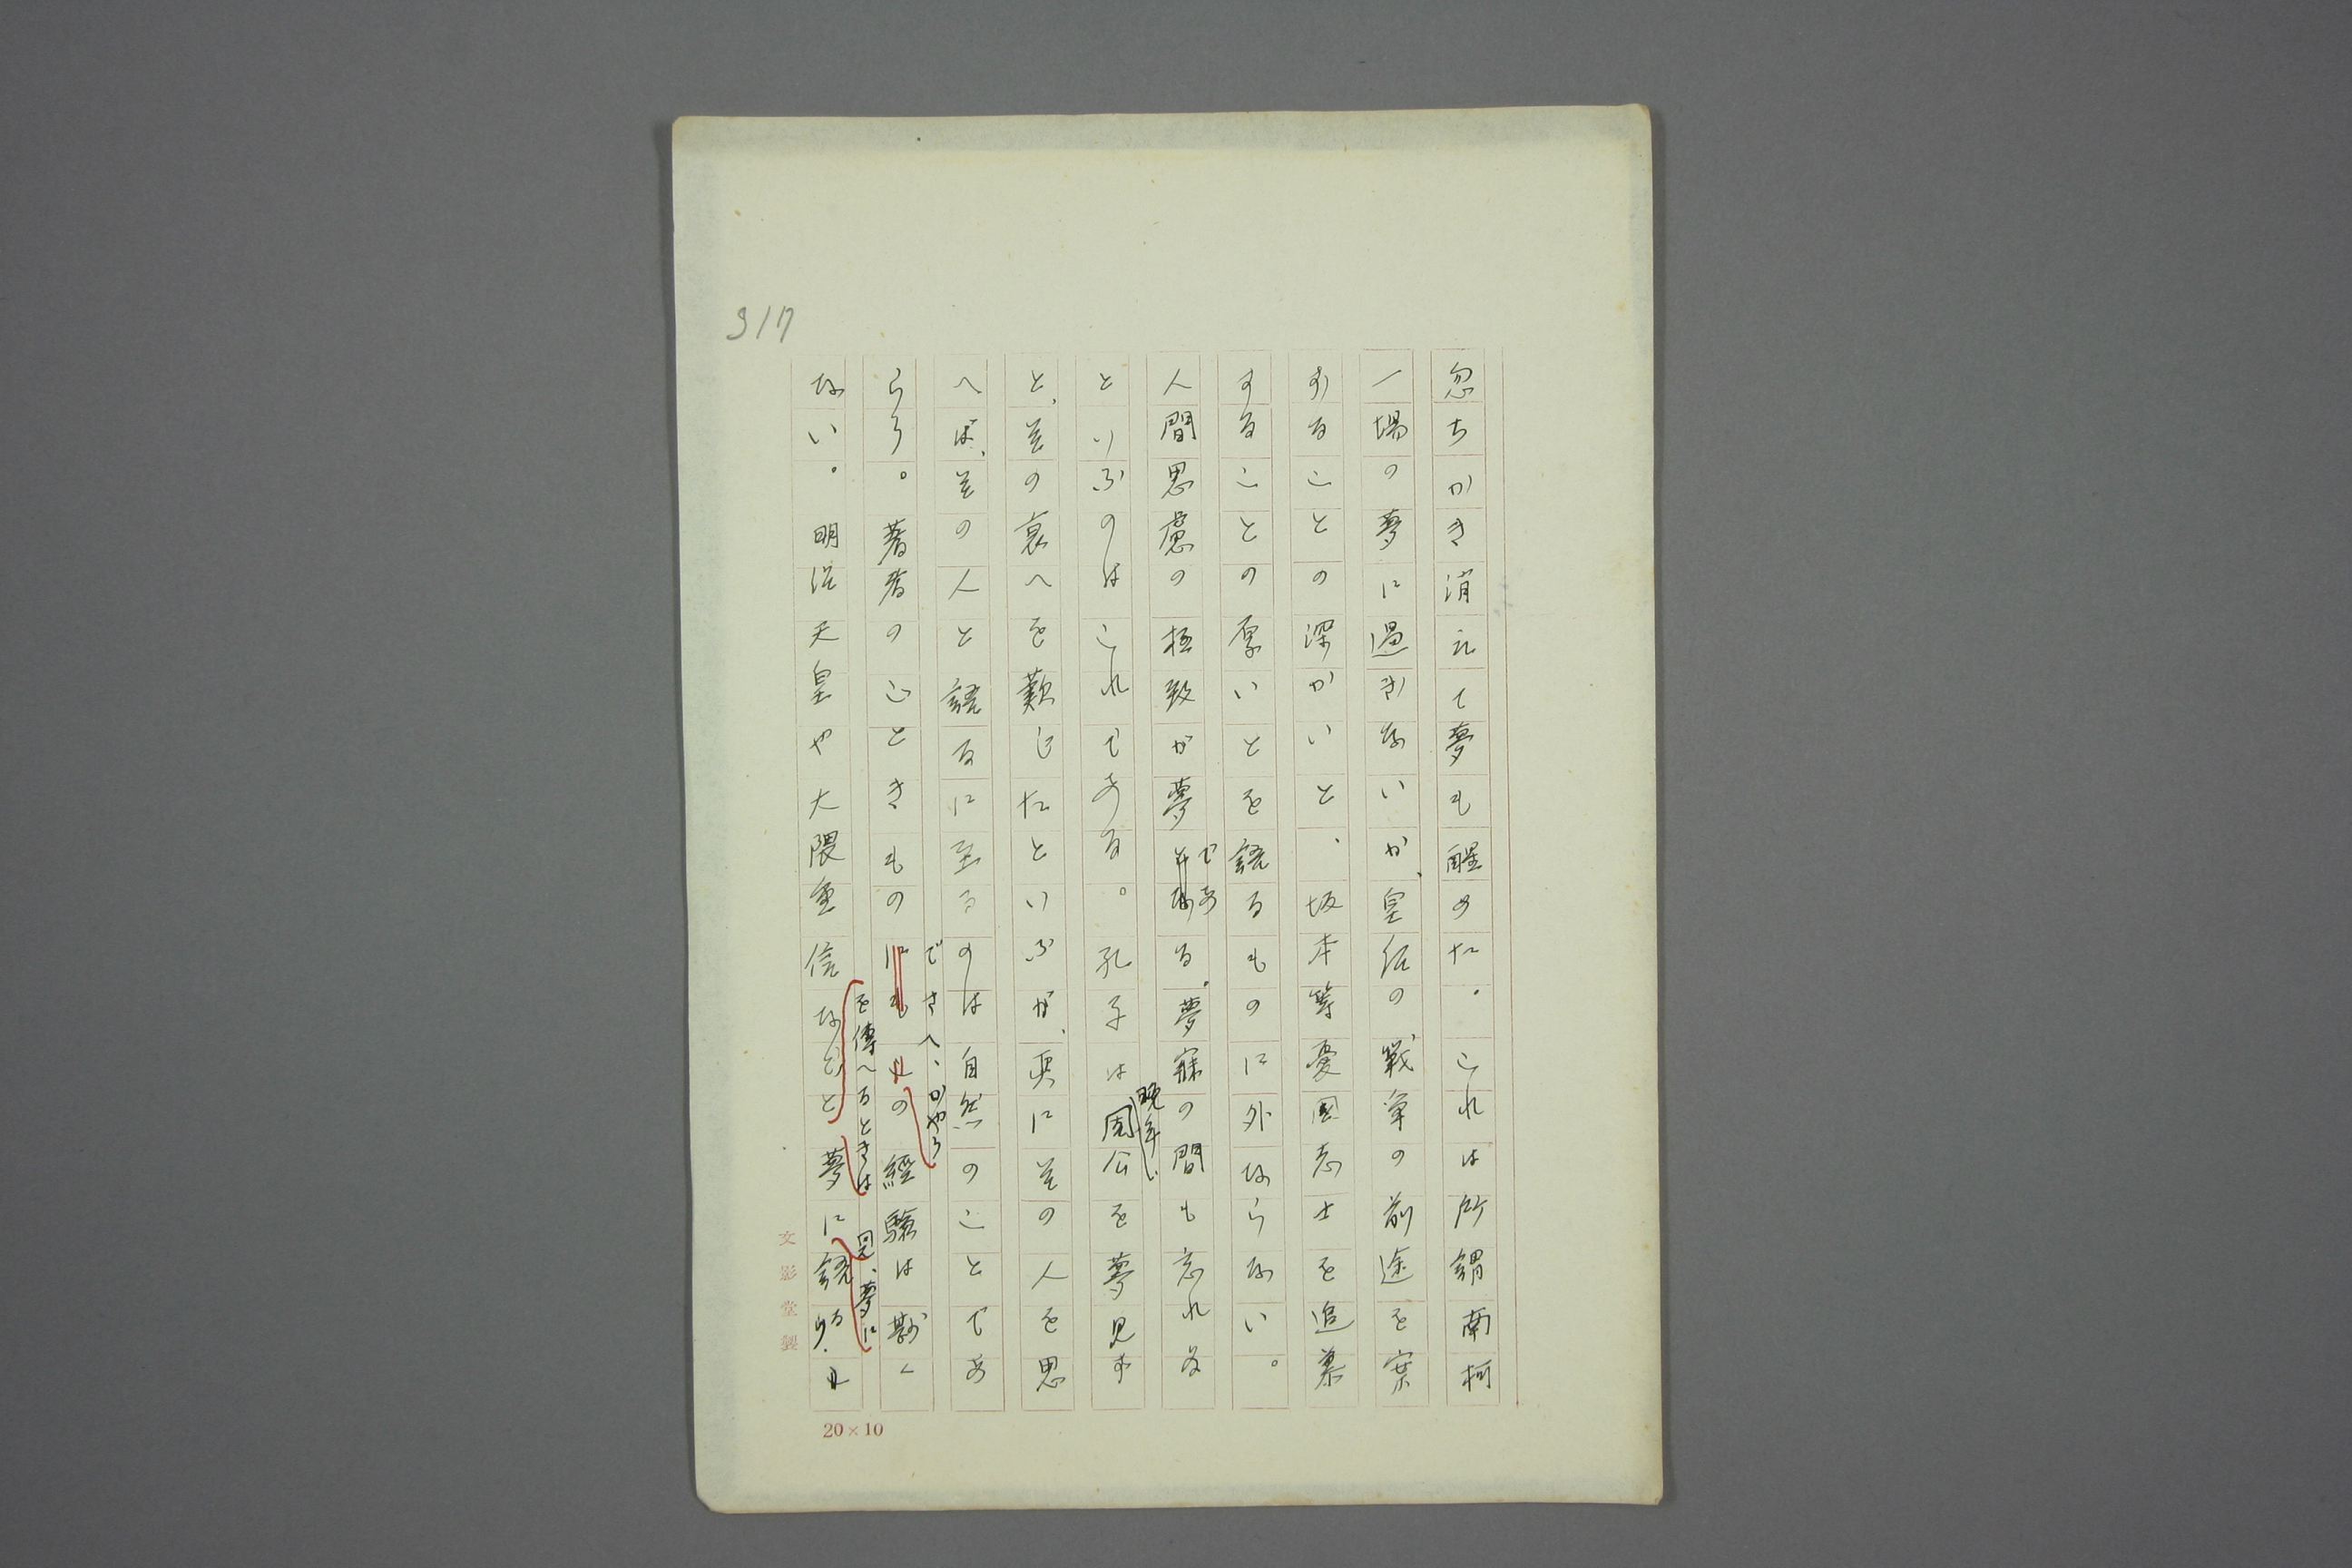 317
忽ちかき消えて夢も醒めた。これは所謂南柯
一場の夢に過ぎないが、皇紀の戰爭の前途を案
ずることの深かいと、坂本等憂國志士を追慕
することの厚いとを語るものに外ならない。
人間思慮の極致が夢である。夢寐の間も忘れぬ
といふのはこれである。孔子は晩年に周公を夢見ず
と、其の衰へを歎じたといふが、眞に其の人を思
へば、其の人と語るに至るのは自然のことであ
らう。著者のごときものでさへ、かやうの經驗は尠く
ない。明治天皇や大隈重信などを傳へるときは夢に語る
文影堂製
20×10